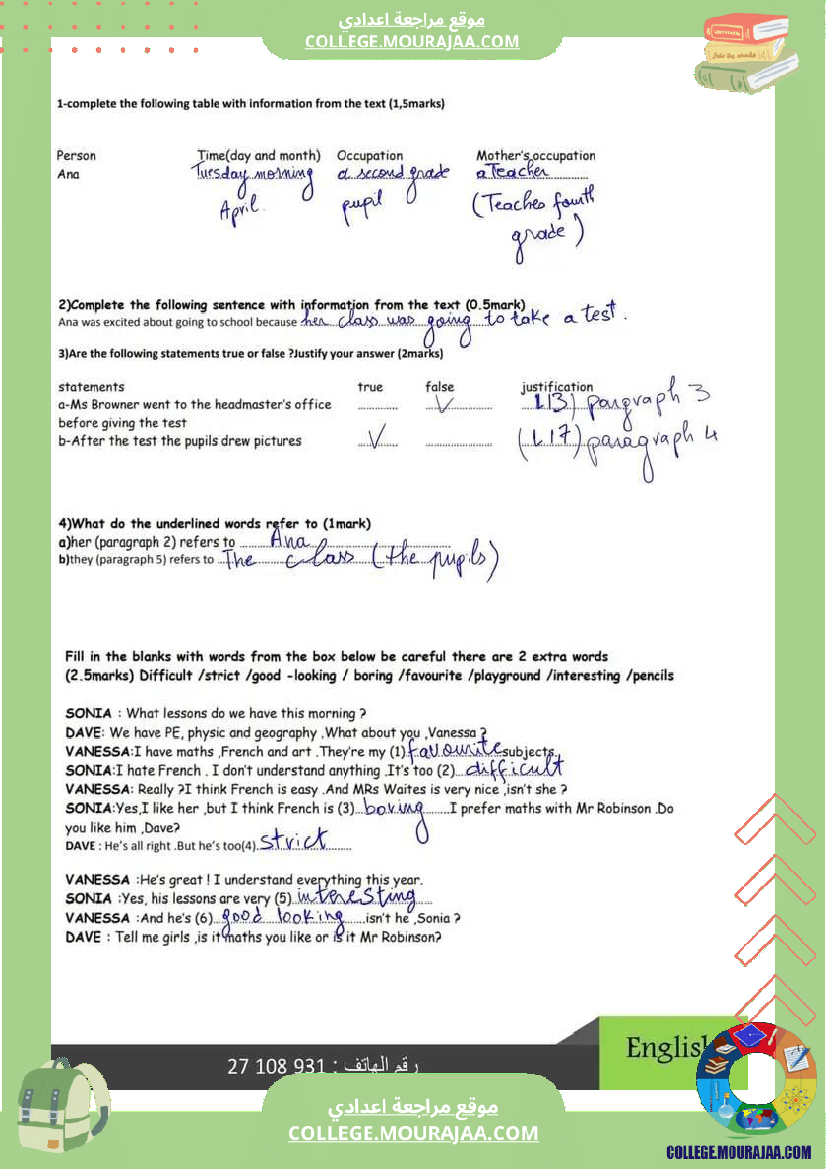 موقع مراجعة اعدادي
COLLEGE.MOURAJAA.COM
1-complete the following table with information from the text (1,5marks)
Person Time(day and month) Occupation Mother's occupation
Ana Tuesday morning a second grade a Teacher
April. pupil (Teaches fourth
grade)
2)Complete the following sentence with information from the text (0.5mark)
Ana was excited about going to school because her class was going to take a test.
3)Are the following statements true or false ?Justify your answer (2marks)
statements true false justification
a-Ms Browner went to the headmaster's office L13) paragraph 3
before giving the test
b-After the test the pupils drew pictures (L17) paragraph 4
4)What do the underlined words refer to (1mark)
a)her (paragraph 2) refers to Ana
b)they (paragraph 5) refers to The class (the pupils)
Fill in the blanks with words from the box below be careful there are 2 extra words
(2.5marks) Difficult /strict /good -looking / boring /favourite /playground /interesting /pencils
SONIA : What lessons do we have this morning ?
DAVE: We have PE, physic and geography .What about you ,Vanessa ?
VANESSA:I have maths ,French and art .They're my (1) favourite subjects.
SONIA:I hate French . I don't understand anything .It's too (2) difficult
VANESSA: Really ?I think French is easy .And MRs Waites is very nice ,isn't she ?
SONIA:Yes,I like her ,but I think French is (3) boring I prefer maths with Mr Robinson .Do
you like him ,Dave?
DAVE : He's all right .But he's too(4) strict
VANESSA :He's great ! I understand everything this year.
SONIA :Yes, his lessons are very (5) interesting
VANESSA :And he's (6) good looking isn't he ,Sonia ?
DAVE : Tell me girls ,is it maths you like or is it Mr Robinson?
English
رقم الهاتف : 931 108 27
موقع مراجعة اعدادي
COLLEGE.MOURAJAA.COM
COLLEGE.MOURAJAA.COM